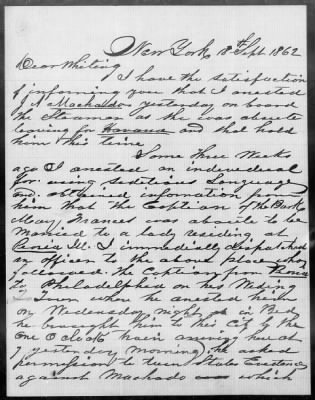 New York 18th Sept 1862
Dear Whiting
I have the satisfaction
of informing you that I arested
J A Machaldo yesterday on board
the Steamer as she was aboute
leaving for Havana and shal hold
him this time
Some three Weeks
ago I arested an indivedual
for using seditious language
and obtained information from
him that the Caption of the Bark
Mary Frances was aboute to be
married to a lady residing at
Peoria Ill. I immediatly dispatched
an officer to the above place who
followed the Caption from Peoria
to Philadelphia on his Weding
Tour when he arested him
on Wednesday night in Bed
he braught him to this City by the
one O clock train ariving here at
7 yesterday morning, he asked
permission to turn States Evidence
against Machado which